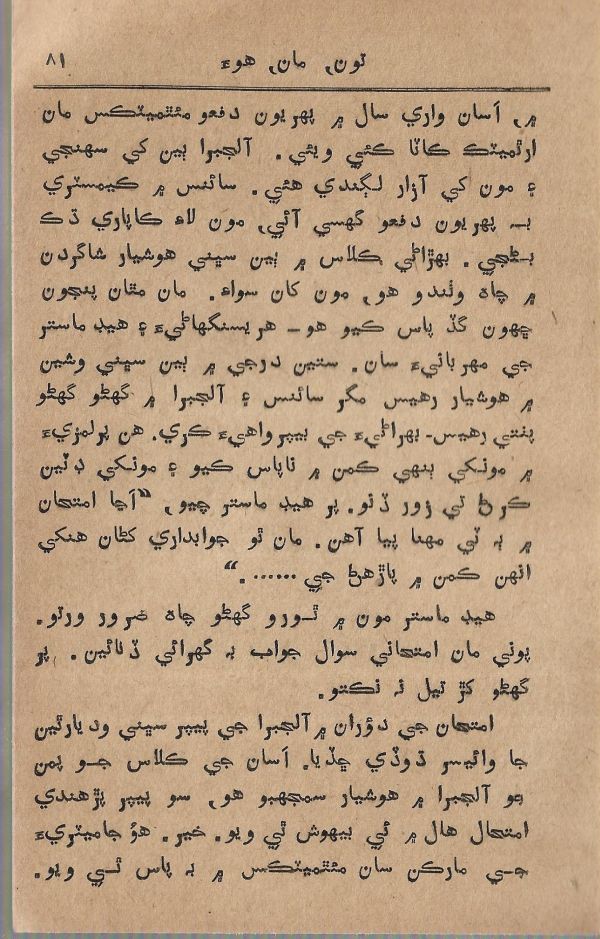 تون، مان، هوءَ ۸۱
۾، اَسان واري سال ۾ پهريون دفعو مئٿميٽڪس مان
ارٿميٽڪ ڪاٽا ڪئي ويئي. آلجبرا ٻين کي سهنجي
۽ مون کي آزار لڳندي هئي. سائنس ۾ ڪيمسٽري
بـ پهريون دفعو گهسي آئي، مون لاءِ ڪاپاري ڌڪ
بـڻجي. ٻهڙاڻي ڪلاس ۾ ٻين سڀني هوشيار شاگردن
۾ چاهه وٺندو هو، مون کان سواءِ. مان مٿان پنجون
ڇهون گڏ پاس ڪيو هو - هريسنگهاڻيءَ ۽ هيڊ ماستر
جي مهربانيءَ سان. ستين درجي ۾ ٻين سڀني وشين
۾ هوشيار رهيس مگر سائنس ۽ آلجبرا ۾ گهڻو گهڻو
پنتي رهيس- بهراڻيءَ جي بيپرواهيءَ ڪري. هن پرلمزيءَ
۾ مونکي ٻنهي ڪمن ۾ ناپاس ڪيو ۽ مونکي ڊٽين
ڪرڻ تي زور ڏنو. پر هيڊ ماستر چيو، “اَڃا امتحان
۾ بہ ٽي مهنا پيا آهن. مان ٿو جوابداري کڻان هنکي
انهن ڪمن ۾ پاڙهڻ جي ....... .“
هيڊ ماستر مون ۾ ٿـورو گهڻو چاهه ضرور ورتو.
پوني مان امتحاني سوال جواب بہ گهرائي ڏنائين. پر
گهڻو کڙ تيل نہ نڪتو.
امتحان جي دؤران ۾ آلجبرا جي پيپر سڀني وديارٿين
جا وائيسر ڌوڏي ڇڏيا. اَسان جي ڪلاس جـو پمن
جو آلجبرا ۾ هوشيار سمجهبو هو، سو پيپر پڙهندي
امتحال هال ۾ ئي بيهوش ٿي ويو. خير. هوُ جاميٽريءَ
جـي مارڪن سان مئٿميٽڪس ۾ بہ پاس ٿـي ويو.